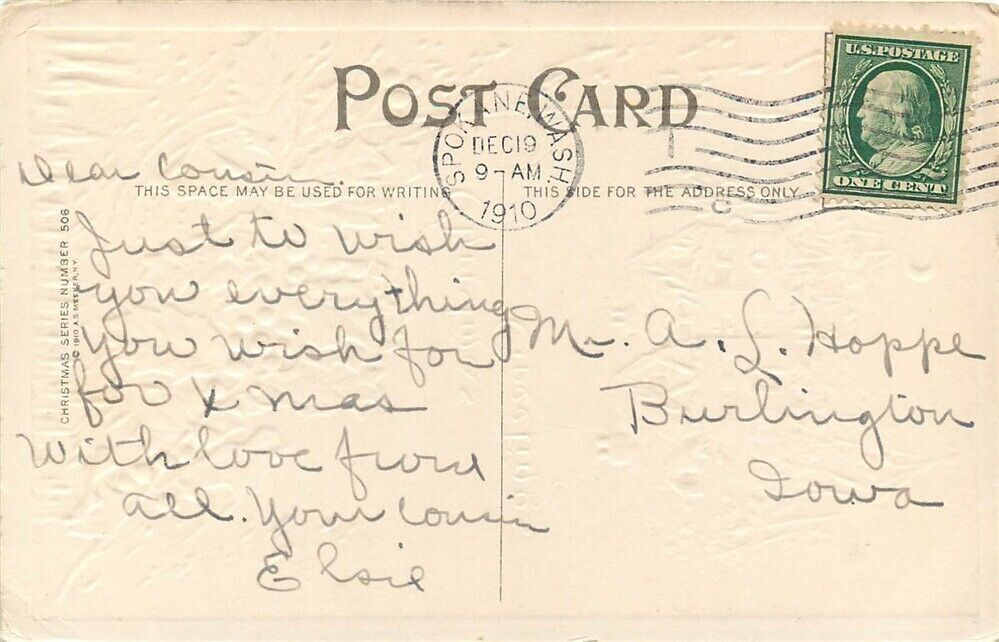 POST CARD
U.S. POSTAGE
ONE CENT
SPOKANE, WASH.
DEC 19
9-AM
1910
C
THIS SPACE MAY BE USED FOR WRITING
THIS SIDE FOR THE ADDRESS ONLY
CHRISTMAS SERIES NUMBER 506
© 1910 A.S. MEEKER, N.Y.
Dear Cousin.
Just to wish
you everything
you wish for
for Xmas
With love from
all. Your Cousin
Elsie
Mr. A. L. Hoppe
Burlington
Iowa